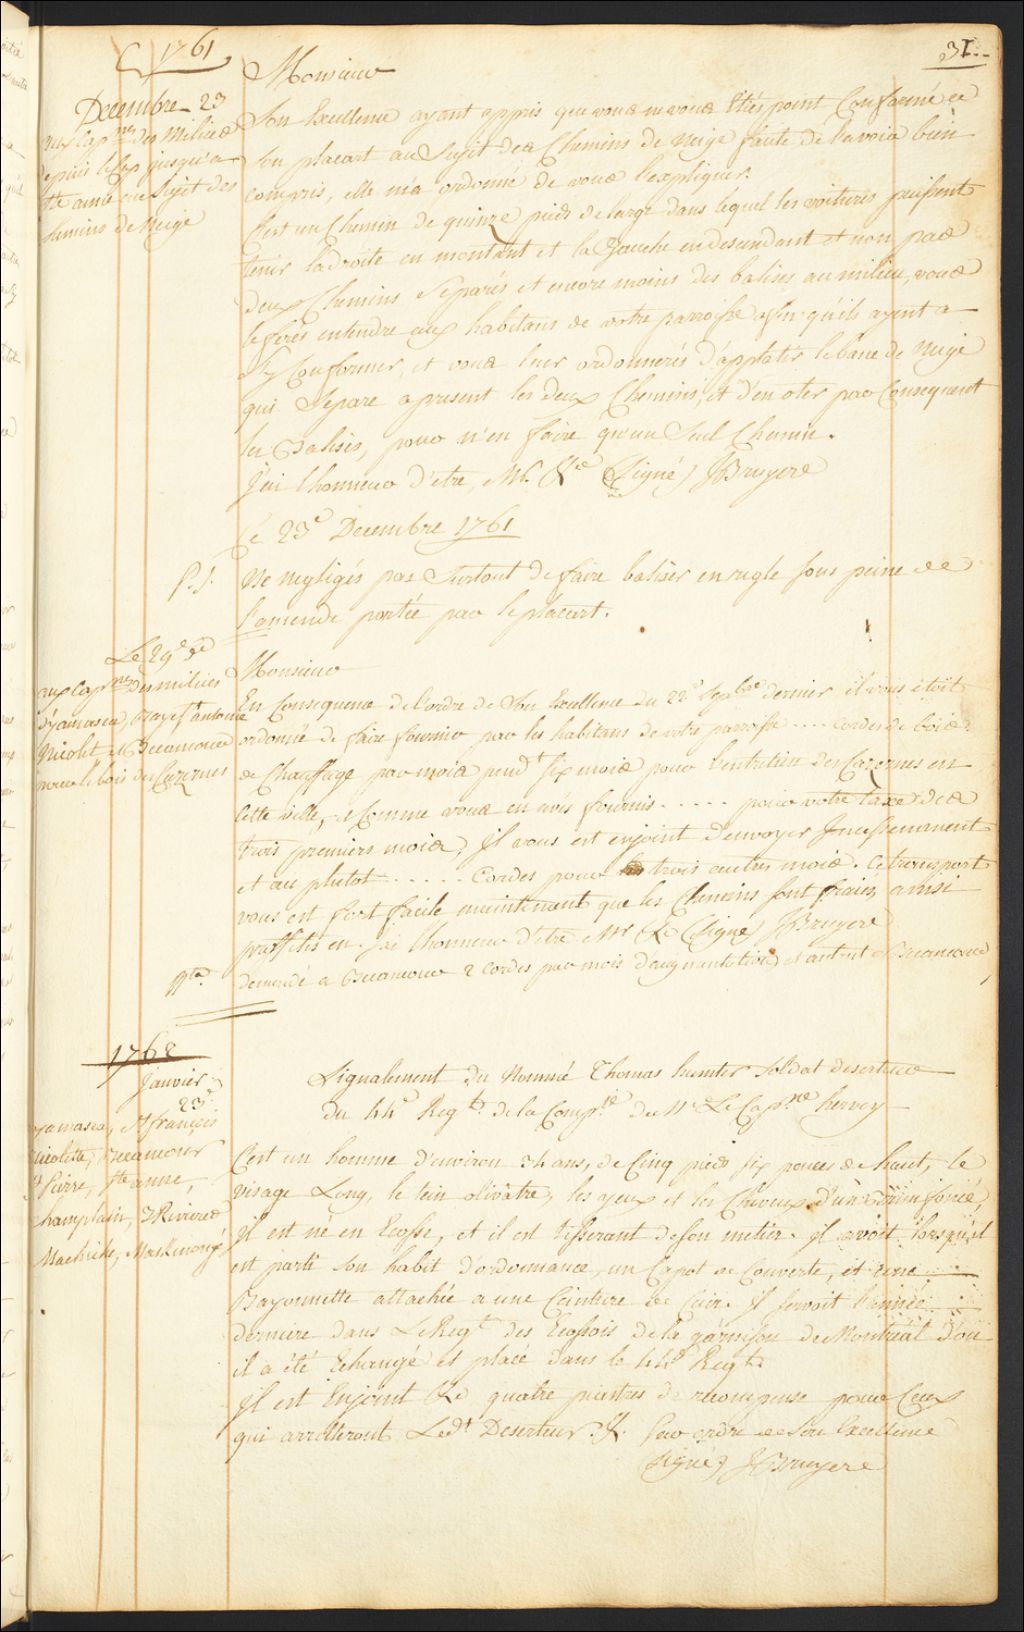 1761
31..
Decembre 23
aux Cap.nes des Milices
depuis le Cap jusqu'a
Ste anne au Sujet des
Chemins de Neige
Monsieur
Son Excellence ayant appris que vous ne vous etiés point Conformé a
son placart au Sujet des Chemins de neige faute de l'avoir bien
compris, elle m'a ordonné de vous l'expliquer.
C'est un Chemin de quinze pieds de large dans lequel les voitures puissent
tenir la droite en montant et la Gauche en descendant et non pas
deux Chemins Separés et encore moins des balises au milieu, vous
le ferés entendre aux habitans de votre parroisse afin qu'ils ayent a
s'y Conformer, et vous leur ordonnerés d'applatir le banc de neige
qui Separe apresent les deux Chemins, et d'en oter par Consequent
les Balises, pour n'en faire qu'un Seul Chemin.
J'ai l'honneur d'etre, Mr. &ce (Signé) JBruyere
Ce 23e Decembre 1761
P.S. Ne negligés pas Surtout de faire baliser en regle sous peine de
l'amende portée par le placart.
Le 29e de
aux Cap.nes des milices
d'yamaska, Baye St antoine
Nicolet et Becancour
pour le bois des Cazernes
Monsieur
En Consequence de l'ordre de Son Excellence du 22e Sepbre dernier il vous etoit
ordonné de faire fournir par les habitans de votre parroisse .... cordes de bois
de Chauffage par mois pend.t six mois pour l'entretien des Cazernes en
Cette ville, et Comme vous en avés fournis ..... pour votre taxe des
trois premiers mois, Il vous est enjoint d'envoyer Incessemment
et au plutot ..... Cordes pour les trois autres mois. Ce transport
vous est fort facile maintenant que les Chemins sont fraiés, ainsi
proffités en. J'ai l'honneur d'etre Mr &c (Signé) JBruyere
N.ta demandé a Becancour 2 cordes par mois d'augmentation et autant a Becancour,
1762
Janvier
23e
yamaska, St françois
Nicolette, Becancour
St Pierre, Ste anne,
Champlain, 3 Rivieres
Machiche, Maskinongé
Signalement du Nommé Thomas hunter Soldat deserteur
du 44e Reg.t de la Comp.ie de Mr Le Cap.ne hervey
C'est un homme d'environ 34 ans, de Cinq pieds six pouces de haut, le
visage Long, le tein olivatre, les yeux et les Cheveux d'un brun foncé,
il est né en Ecosse, et il est tisserant de son metier. il avoit lorsqu'il
est parti son habit d'ordonnance, un Capot de Couverte, et une
Bayonnette attachée a une Ceinture de Cuir. Il servoit l'année
derniere dans Le Reg.t des Ecossois de la garnison de Montreal d'ou
il a été Echangé et placé dans le 44e Regt.
Il est Enjoint &c quatre piastres de recompense pour Ceux
qui arretteront Led.t Deserteur. &. Par ordre de Son Excellence
(Signé) JBruyere